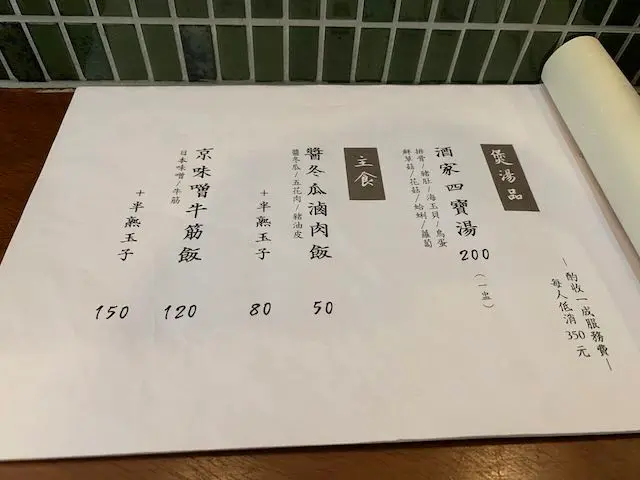 煲湯品
酒家四寶湯
200
(一盅)
排骨/豬肚/海玉貝/鳥蛋
鮮草菇/花菇/蛤蜊/蘿蔔
主食
醬冬瓜滷肉飯
50
醬冬瓜/五花肉/豬油皮
+半熟玉子
80
京味噌牛筋飯
120
日本味噌/牛筋
+半熟玉子
150
—酌收一成服務費—
每人低消350元